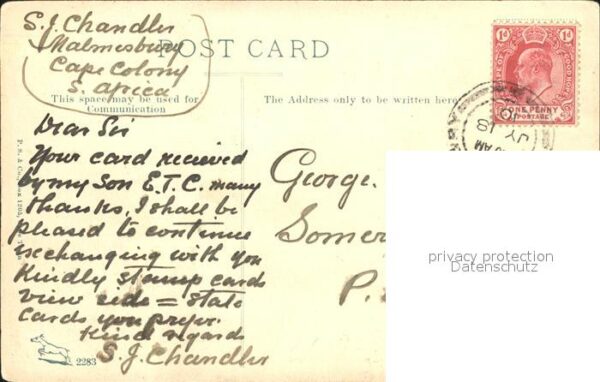 S.J. Chandler
Malmesbury
Cape Colony
S. Africa
POST CARD
This space may be used for
Communication
The Address only to be written here
1d 1d
ONE PENNY
POSTAGE
JY 18
AM
Dear Sir
Your card received
by my son E.T.C. many
thanks, I shall be
pleased to continue
exchanging with you
Kindly stamp cards
view side = state
cards you prefer.
Kind regards
S.J. Chandler
George.
Somer
P.
privacy protection
Datenschutz
2283